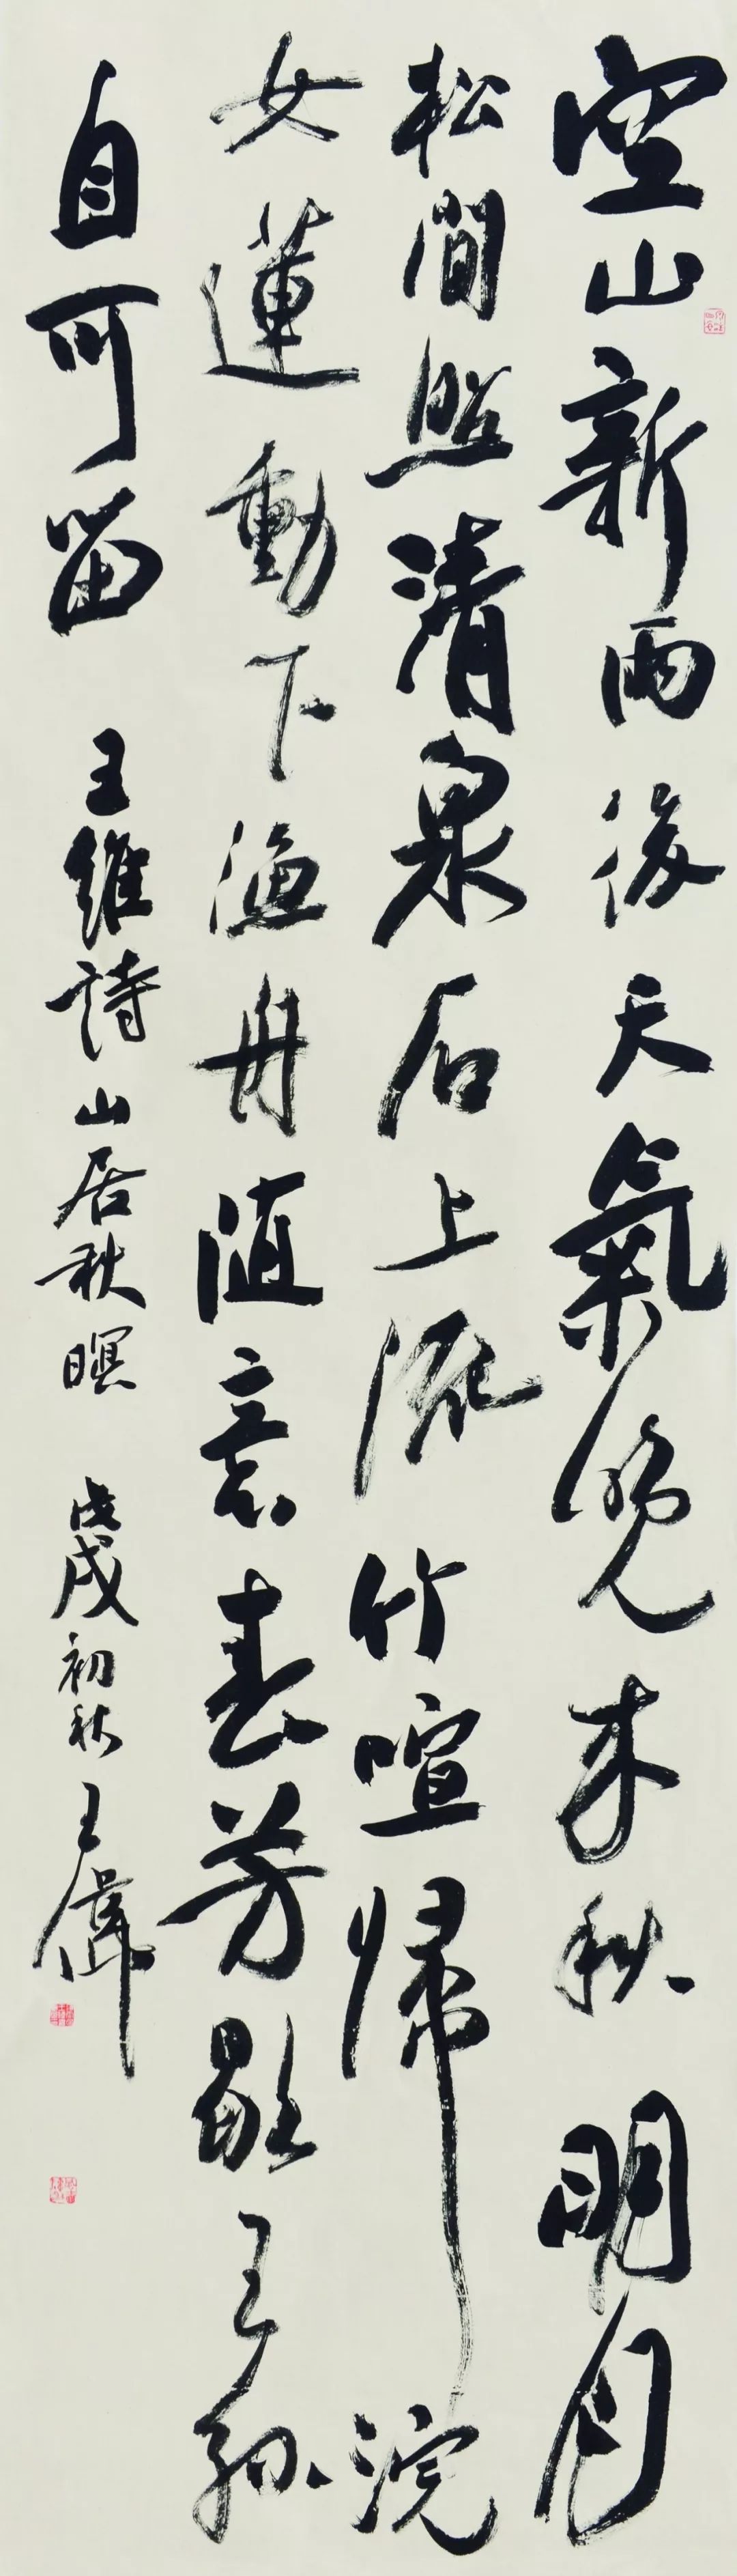 空山新雨後天氣晚来秋明月
松間照清泉石上流竹喧歸浣
女蓮動下漁舟随意春芳歇王孫
自可留 王維詩山居秋暝 戊戌初秋王偉